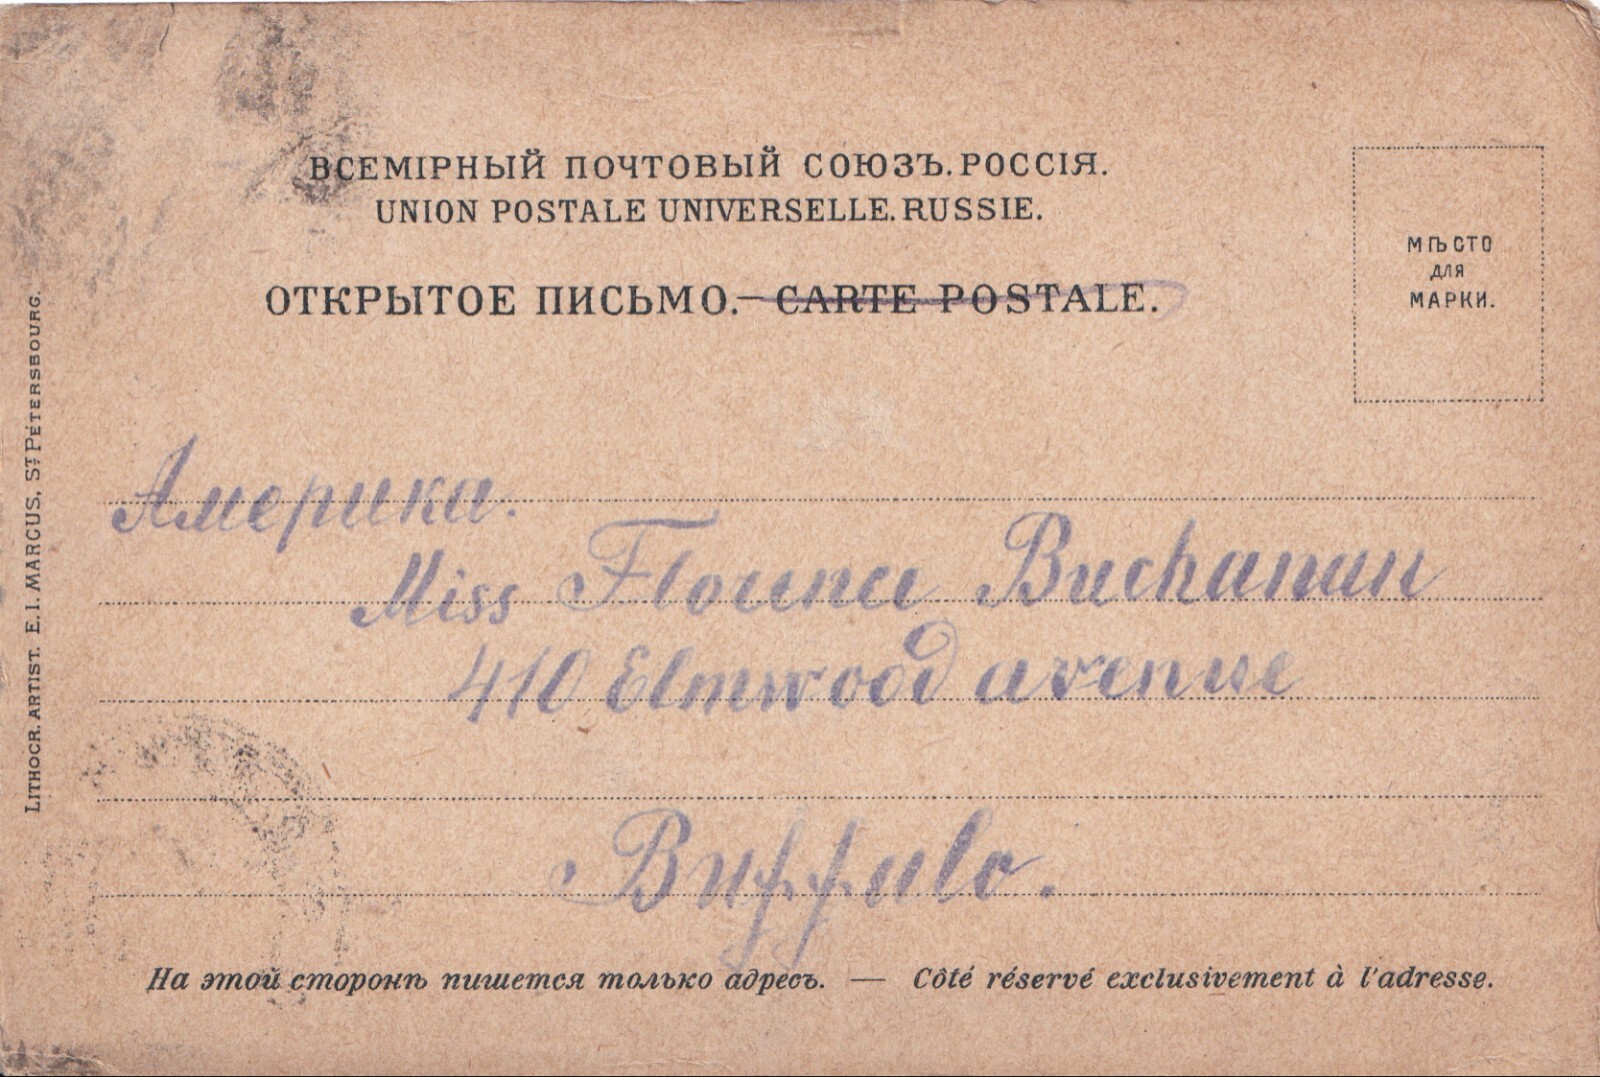 ВСЕМІРНЫЙ ПОЧТОВЫЙ СОЮЗЪ. РОССІЯ.
UNION POSTALE UNIVERSELLE. RUSSIE.
ОТКРЫТОЕ ПИСЬМО. — CARTE POSTALE.
МѢСТО
ДЛЯ
МАРКИ.
Америка.
Miss Florence Buchanan
410 Elmwood avenue
Buffalo.
На этой сторонѣ пишется только адресъ. — Côté réservé exclusivement à l'adresse.
LITHOGR. ARTIST. E. I. MARCUS, ST PÉTERSBOURG.